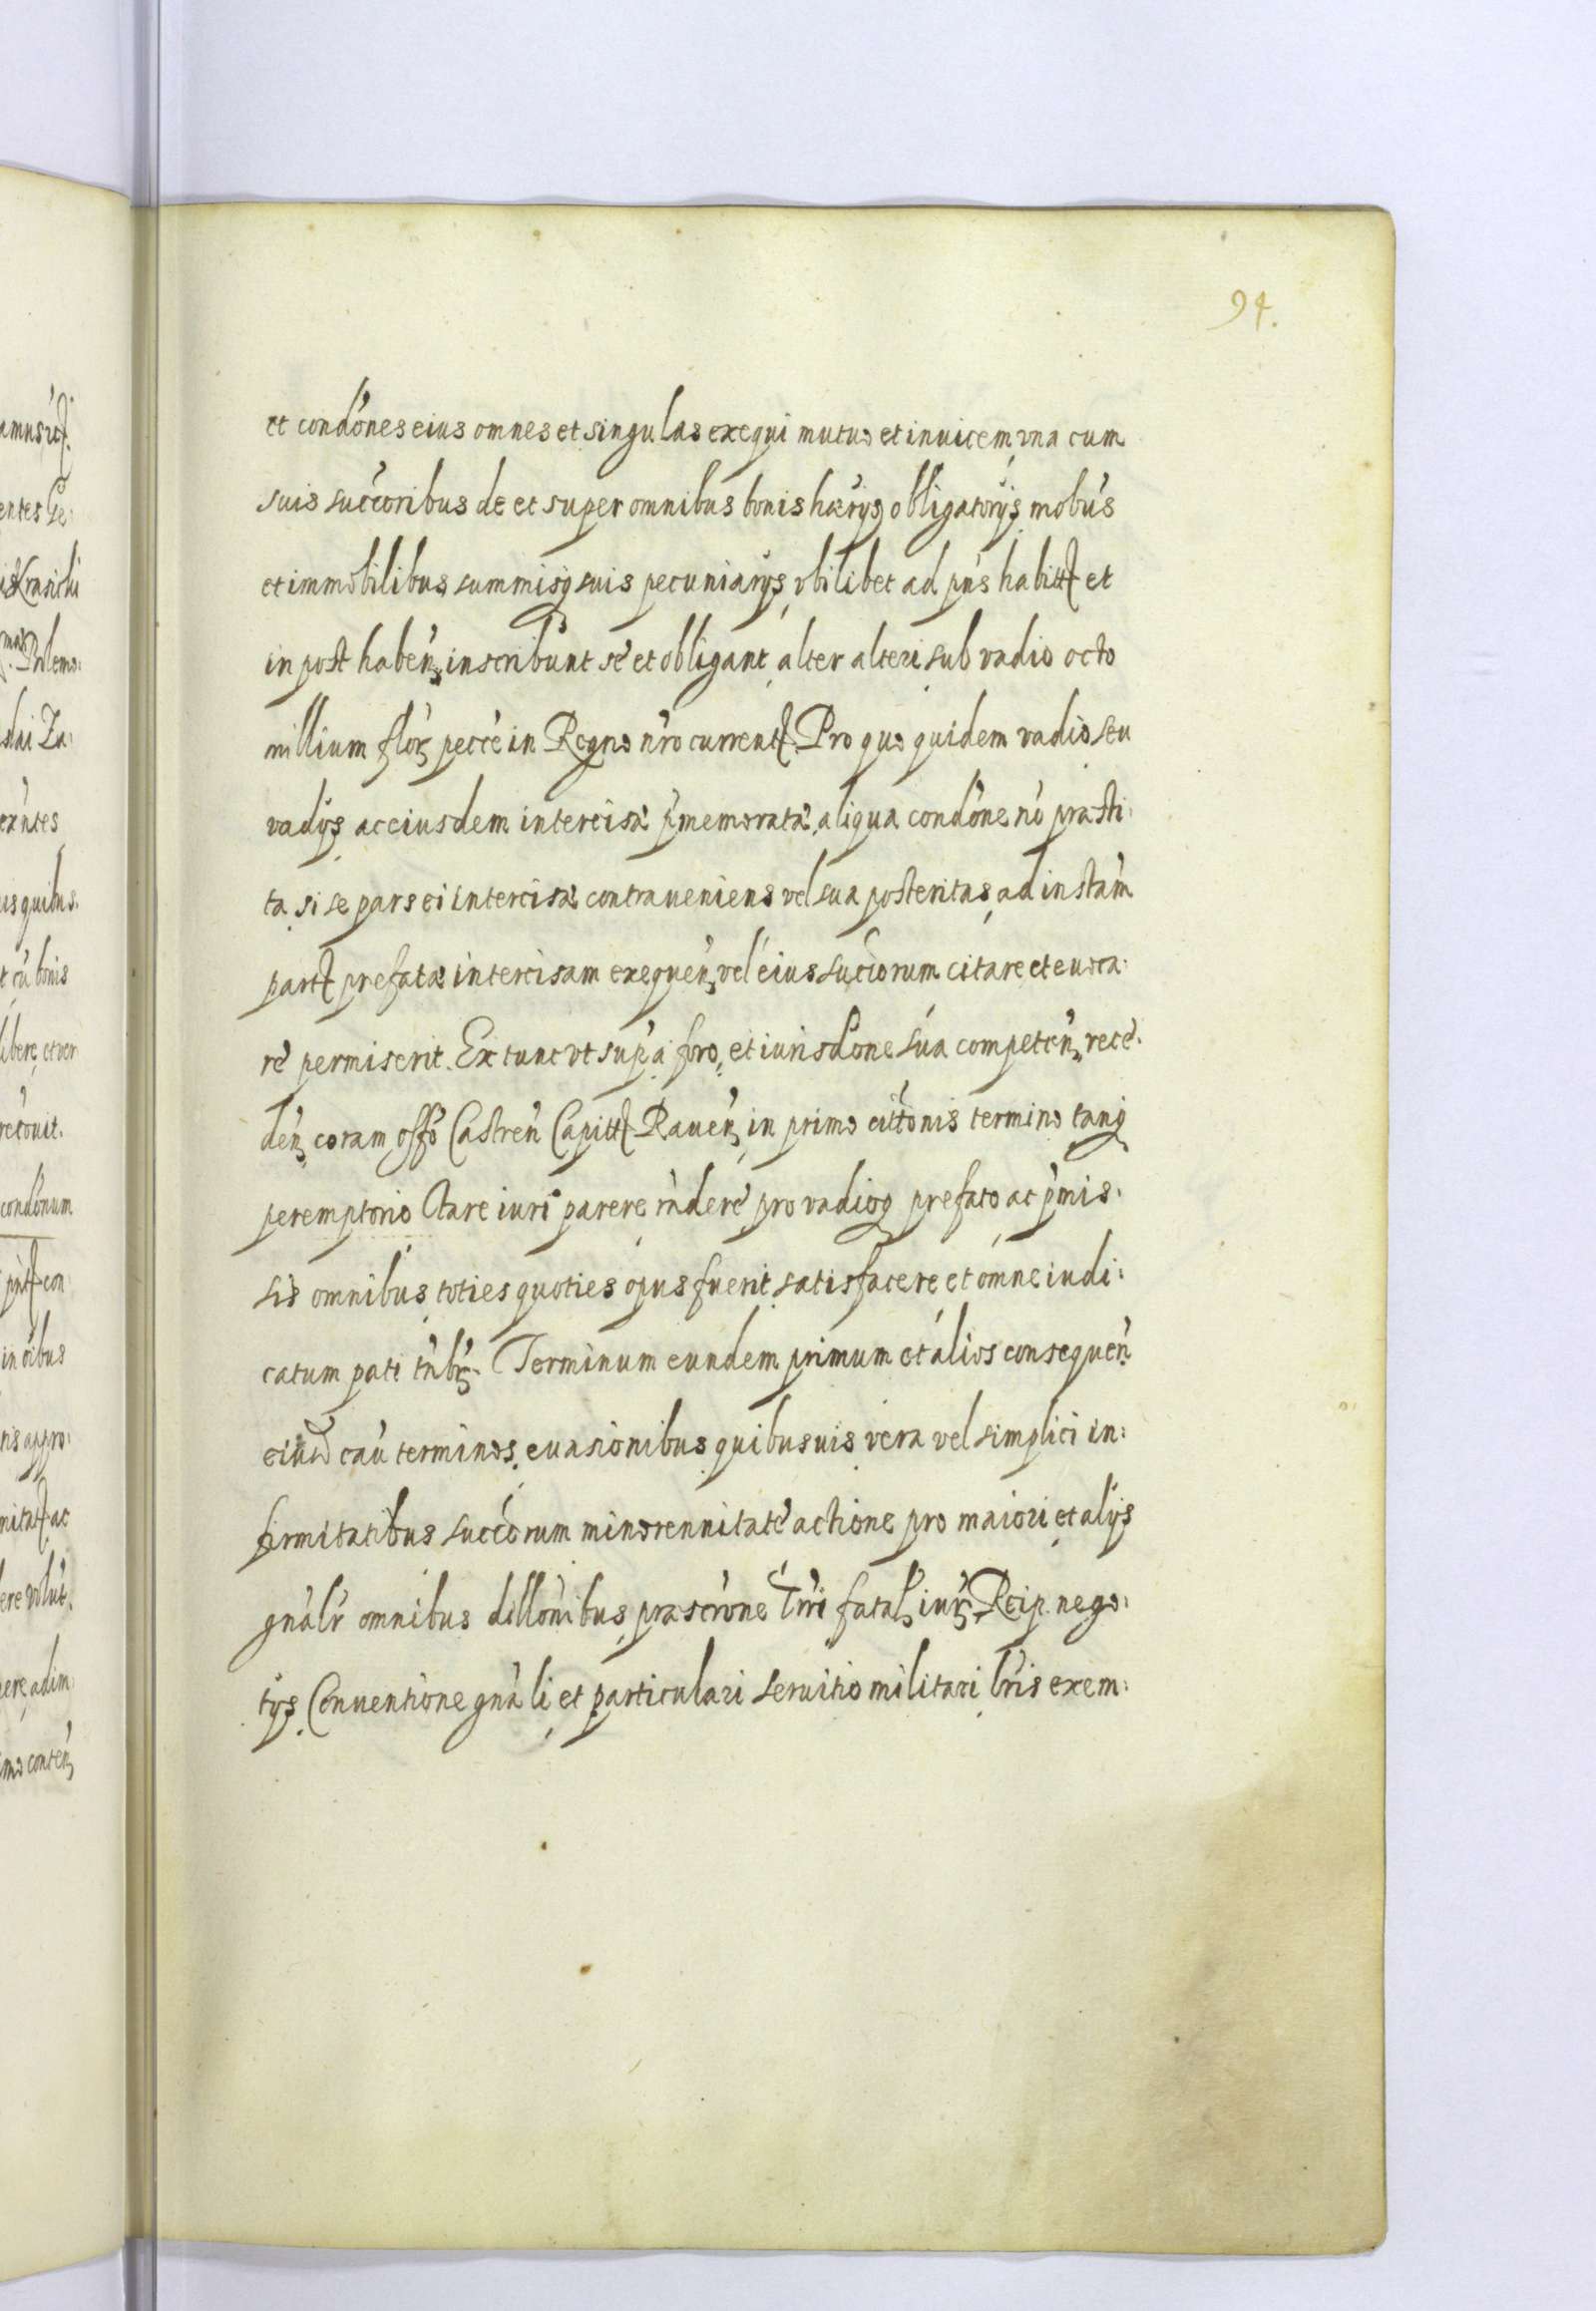 94.
et condões eius omnes et singulas exequi mutuo et inuicem, vna cum
suis succoribus de et super omnibus bonis hærijs obligatorijs, mobus
et immobilibus, summisq suis pecuniarijs, vbilibet ad pns habitt et
in post haben, inscribunt se et obligant, alter alteri, sub vadio octo
millium flor pecce in Regno nro current. Pro quo quidem vadio, seu
vadijs, ac eiusdem intercisæ pmemoratæ, aliqua condone no præsti:
ta, si se pars ei intercisæ contraueniens vel sua posteritas, ad instam
part prefatæ intercisam exequen, vel eius succorum citare et euoca:
re permiserit. Ex tunc vt supa, a foro, et iurisdone sua competen, rece:
den, coram offo Castren Capitt Rauen, in primo cittonis termino tanq
peremptorio stare iuri parere rndere pro vadioq prefato ac pmis:
sis omnibus, toties quoties opus fuerit, satisfacere et omne iudi:
catum pati tnbr. Terminum eundem primum et alios consequen
eiusd cau terminos, euasionibus quibusuis, vera vel simplici in:
firmitatibus succorum minorennitate actione pro maiori, et alijs
gnalr omnibus dillonibus, præscrone Trri fatal iur, Reip. nego:
tijs, Conuentione gnali, et particulari seruitio militari lris exem:
amus
entes Ge:
Krasichi
slai Za:
is quibus
t cu bonis
libere, et ver
condonum
con
in oibus
tis appro:
nitat ac
ere volut
ere, adim:
imo conten